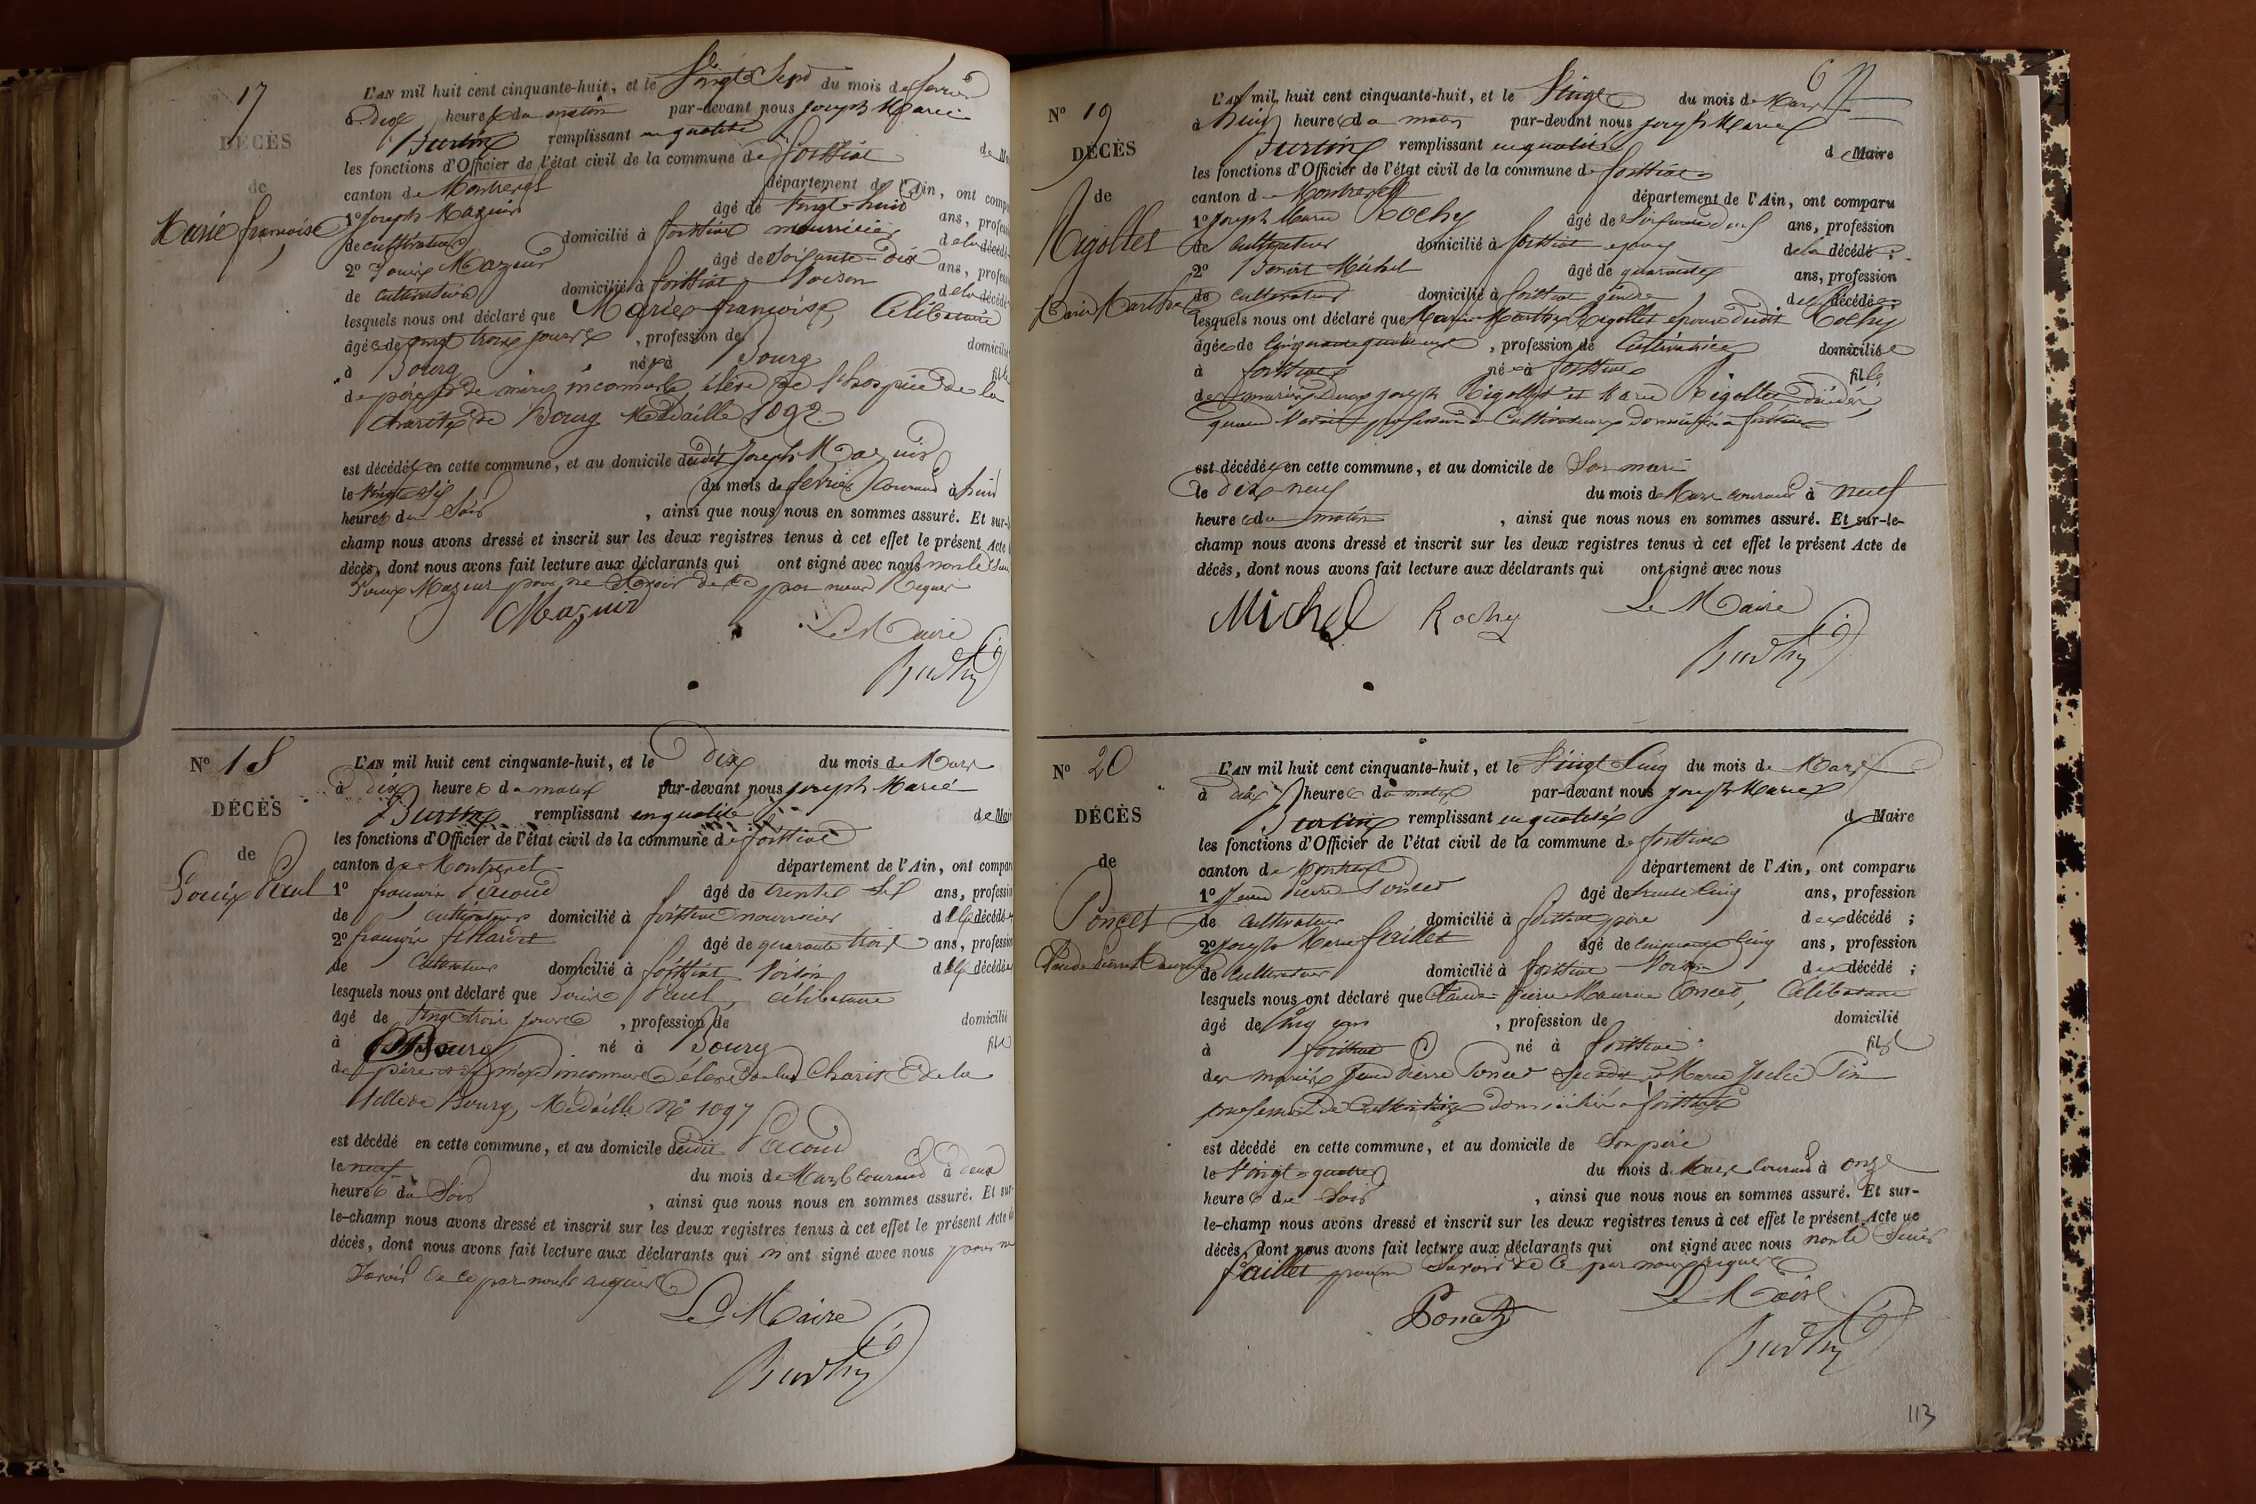 17
DÉCÈS
de
Marie françoise
L'AN mil huit cent cinquante-huit, et le Vingt Sept du mois de février
à Dix heures du matin par-devant nous joseph Marie
Burtin remplissant en qualité de Maire
les fonctions d'Officier de l'état civil de la commune de foissiat
canton de Montrevel département de l'Ain, ont comparu
1º joseph Mazuir âgé de Vingt-huit ans, profession
de cultivateur domicilié à foissiat nourricier de la décédée
2º Mazuir âgé de Soixante-Dix ans, profession
de cultivateur domicilié à foissiat Voisin de la décédée
lesquels nous ont déclaré que Marie françoise, Célibataire
âgée de vingt trois jours, profession de domicilié
à Bourg née à Bourg fille
de père et de mère inconnus, élève de l'hospice de la
charité de Bourg Médaille 1092
est décédée en cette commune, et au domicile dudit Joseph Mazuir
le Vingt-Six du mois de février Courant à huit
heures du Soir, ainsi que nous nous en sommes assuré. Et sur-le-
champ nous avons dressé et inscrit sur les deux registres tenus à cet effet le présent Acte
décès, dont nous avons fait lecture aux déclarants qui ont signé avec nous non le Sieur
Mazuir pour ne Savoir de ce par nous Requis
Mazuir
Le Maire
Burtin
Nº 18
DÉCÈS
de
L'AN mil huit cent cinquante-huit, et le dix du mois de Mars
à dix heures du matin par-devant nous joseph Marie
Burtin remplissant en qualité de Maire
les fonctions d'Officier de l'état civil de la commune de foissiat
canton de Montrevel département de l'Ain, ont comparu
1º françois âgé de trente-Six ans, profession
de cultivateur domicilié à foissiat nourricier de la décédée
2º françois âgé de quarante trois ans, profession
de Cultivateur domicilié à foissiat Voisin de la décédée
lesquels nous ont déclaré que célibataire
âgé de Vingt trois jours, profession de domicilié
à Bourg né à Bourg fille
de père et de mère inconnus élève de la Charité de la
Ville de Bourg, Médaille Nº 1097
est décédé en cette commune, et au domicile dudit
le neuf du mois de Mars courant à deux
heures du Soir, ainsi que nous nous en sommes assuré. Et sur-
le-champ nous avons dressé et inscrit sur les deux registres tenus à cet effet le présent Acte de
décès, dont nous avons fait lecture aux déclarants qui n'ont signé avec nous pour ne
Savoir de ce par nous requis
Le Maire
Burtin
Nº 19
DÉCÈS
de
Rigollet
Marie Marthe
L'AN mil huit cent cinquante-huit, et le Vingt du mois de Mars
à huit heures du matin par-devant nous joseph Marie
Burtin remplissant en qualité de Maire
les fonctions d'Officier de l'état civil de la commune de foissiat
canton de Montrevel département de l'Ain, ont comparu
1º joseph Marie Rochy âgé de ans, profession
de Cultivateur domicilié à foissiat époux de la décédée ;
2º Benoit Michel âgé de quarante ans, profession
de cultivateur domicilié à foissiat gendre de la décédée
lesquels nous ont déclaré que Marie Marthe Rigollet épouse dudit Rochy
âgée de, profession de Cultivatrice domiciliée
à foissiat née à foissiat fille
des mariés joseph Rigollet et Marie Rigollet décédés
quand Vivait profession de Cultivateurs domiciliés à foissiat
est décédée en cette commune, et au domicile de Son mari
le dix neuf du mois de Mars courant à neuf
heures du matin, ainsi que nous nous en sommes assuré. Et sur-le-
champ nous avons dressé et inscrit sur les deux registres tenus à cet effet le présent Acte de
décès, dont nous avons fait lecture aux déclarants qui ont signé avec nous
Michel Rochy Le Maire
Burtin
Nº 20
DÉCÈS
de
Poncet
Claude Pierre Maurice
L'AN mil huit cent cinquante-huit, et le Vingt Cinq du mois de Mars
à dix heures du matin par-devant nous joseph Marie
Burtin remplissant en qualité de Maire
les fonctions d'Officier de l'état civil de la commune de foissiat
canton de Montrevel département de l'Ain, ont comparu
1º Jean Pierre Poncet âgé de trente Cinq ans, profession
de cultivateur domicilié à foissiat père du décédé ;
2º joseph Marie faillet âgé de cinquante Cinq ans, profession
de cultivateur domicilié à foissiat Voisin du décédé ;
lesquels nous ont déclaré que Claude Pierre Maurice Poncet, Célibataire
âgé de Cinq ans, profession de domicilié
à foissiat né à foissiat fils
des mariés Jean Pierre Poncet et Marie Julie Pin
profession de Cultivateurs domiciliés à foissiat
est décédé en cette commune, et au domicile de Son père
le Vingt-quatre du mois de Mars Courant à onze
heures du Soir, ainsi que nous nous en sommes assuré. Et sur-
le-champ nous avons dressé et inscrit sur les deux registres tenus à cet effet le présent Acte de
décès, dont nous avons fait lecture aux déclarants qui ont signé avec nous non le Sieur
faillet pour ne Savoir de Ce par nous requis
Le Maire
Poncet
Burtin
113